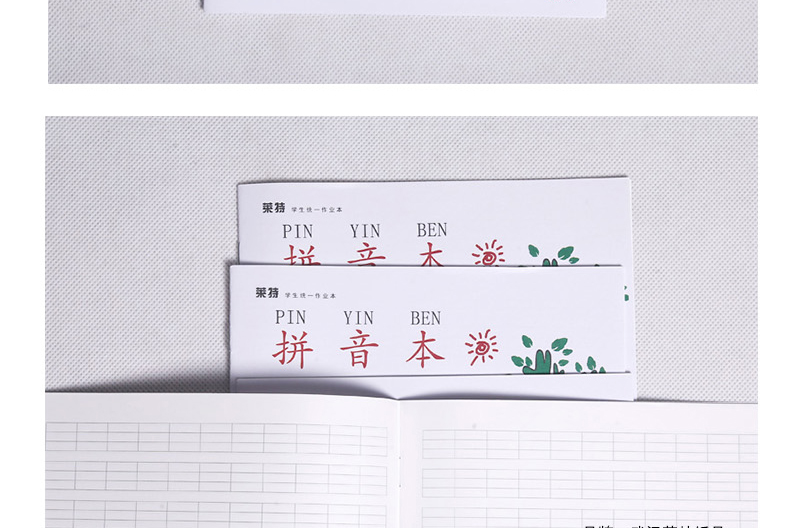 莱特 学生统一作业本
PIN YIN BEN
拼音本
莱特 学生统一作业本
PIN YIN BEN
拼 音 本